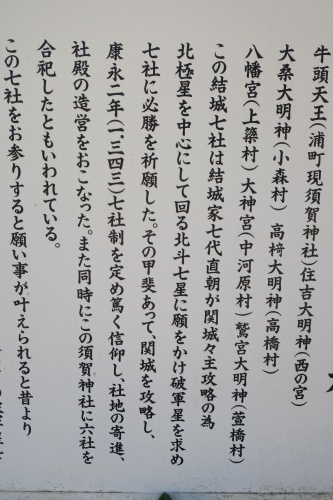 牛頭天王(浦町現須賀神社)住吉大明神(西の宮)
大桑大明神(小森村) 高椅大明神(高橋村)
八幡宮(上簗村)大神宮(中河原村)鷲宮大明神(萱橋村)
この結城七社は結城家七代直朝が関城々主攻略の為
北極星を中心にして回る北斗七星に願をかけ破軍星を求め
七社に必勝を祈願した。その甲斐あって、関城を攻略し、
康永二年(一、三四三)七社制を定め篤く信仰し、社地の寄進、
社殿の造営をおこなった。また同時にこの須賀神社に六社を
合祀したともいわれている。
この七社をお参りすると願い事が叶えられると昔より